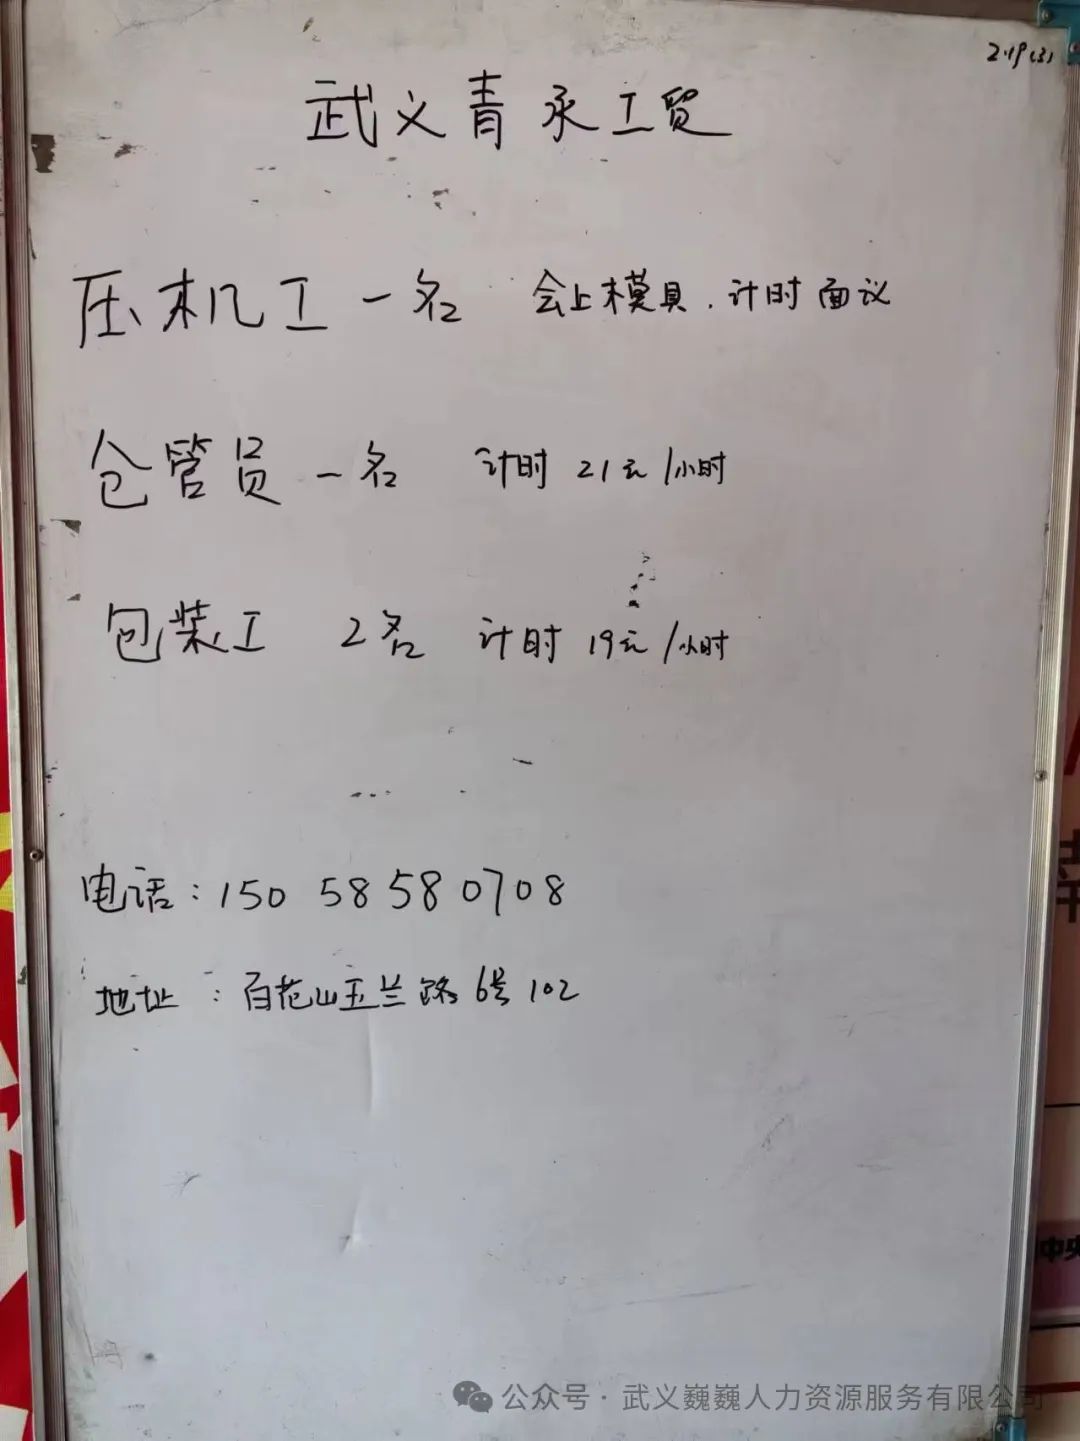 2.19(3)
武义青承工贸
压机工 一名 会上模具.计时面议
仓管员 一名 计时 21元/小时
包装工 2名 计时 19元/小时
电话:150 58580708
地址:百花山玉兰路6号102
中央
公众号·武义巍巍人力资源服务有限公司